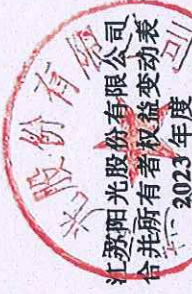 江苏阳光股份有限公司
合并所有者权益变动表
2023年度
光股份有